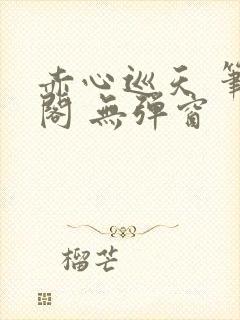 赤心巡天 筆
閣 無彈窗
榴芒